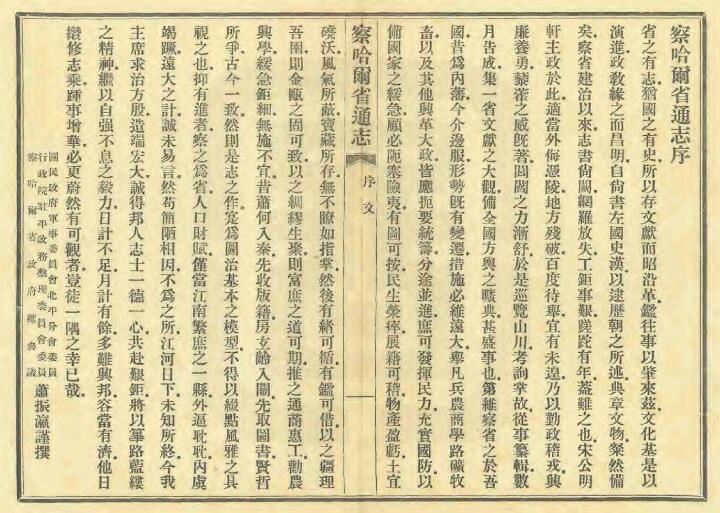 察哈爾省通志序
省之有志猶國之有史所以存文獻而昭沿革鑑往事以肇來茲文化基是以
演進政敎緣之而昌明自尙書左國史漢以逮歷朝之所述典章文物粲然備
矣察省建治以來志書尙闕網羅放失工鉅事艱蹉跎有年蓋難之也宋公明
軒主政於此適當外侮憑陵地方殘破百度待舉宜有未遑乃以勤政稽戎興
廉養勇藜莠之威旣著閭閻之力漸舒於是巡覽山川考詢掌故從事纂輯數
月告成集一省文獻之大觀備全國方輿之曠典甚盛事也第維察省之於吾
國昔為內藩今介邊服形勢旣有變遷措施必維遠大舉凡兵農商學路礦牧
畜以及其他興革大政皆應扼要統籌分途並進庶可發揮民力充實國防以
備國家之緩急顧必阨塞險夷有圖可按民生榮瘁展籍可稽物產盈虧土宜
察哈爾省通志
序文
磽沃風氣所蔽寶藏所存無不瞭如指掌然後有緒可循有鑑可借以之疆理
吾圉則金甌之固可致以之綢繆生聚則富庶之道可期推之通商惠工勸農
興學緩急鉅細無施不宜昔蕭何入秦先收版籍房玄齡入關先取圖書賢哲
所爭古今一致然則是志之作寔為圖治基本之模型不得以綴點風雅之具
視之也抑有進者察之為省人口財賦僅當江南繁庶之一縣外逼耽耽內虞
竭蹶遠大之計誠未易言然苟簡陋相因不為之所江河日下未知所終今我
主席求治方殷造端宏大誠得邦人志士一德一心共赴艱鉅將以篳路藍縷
之精神繼以自强不息之毅力日計不足月計有餘多難興邦容當有濟他日
纘修志乘踵事增華必更蔚然有可觀者豈徒一隅之幸已哉
國民政府軍事委員會北平分會委員
行政院駐平政務整理委員會委員
察哈爾省政府總參議
蕭振瀛謹撰